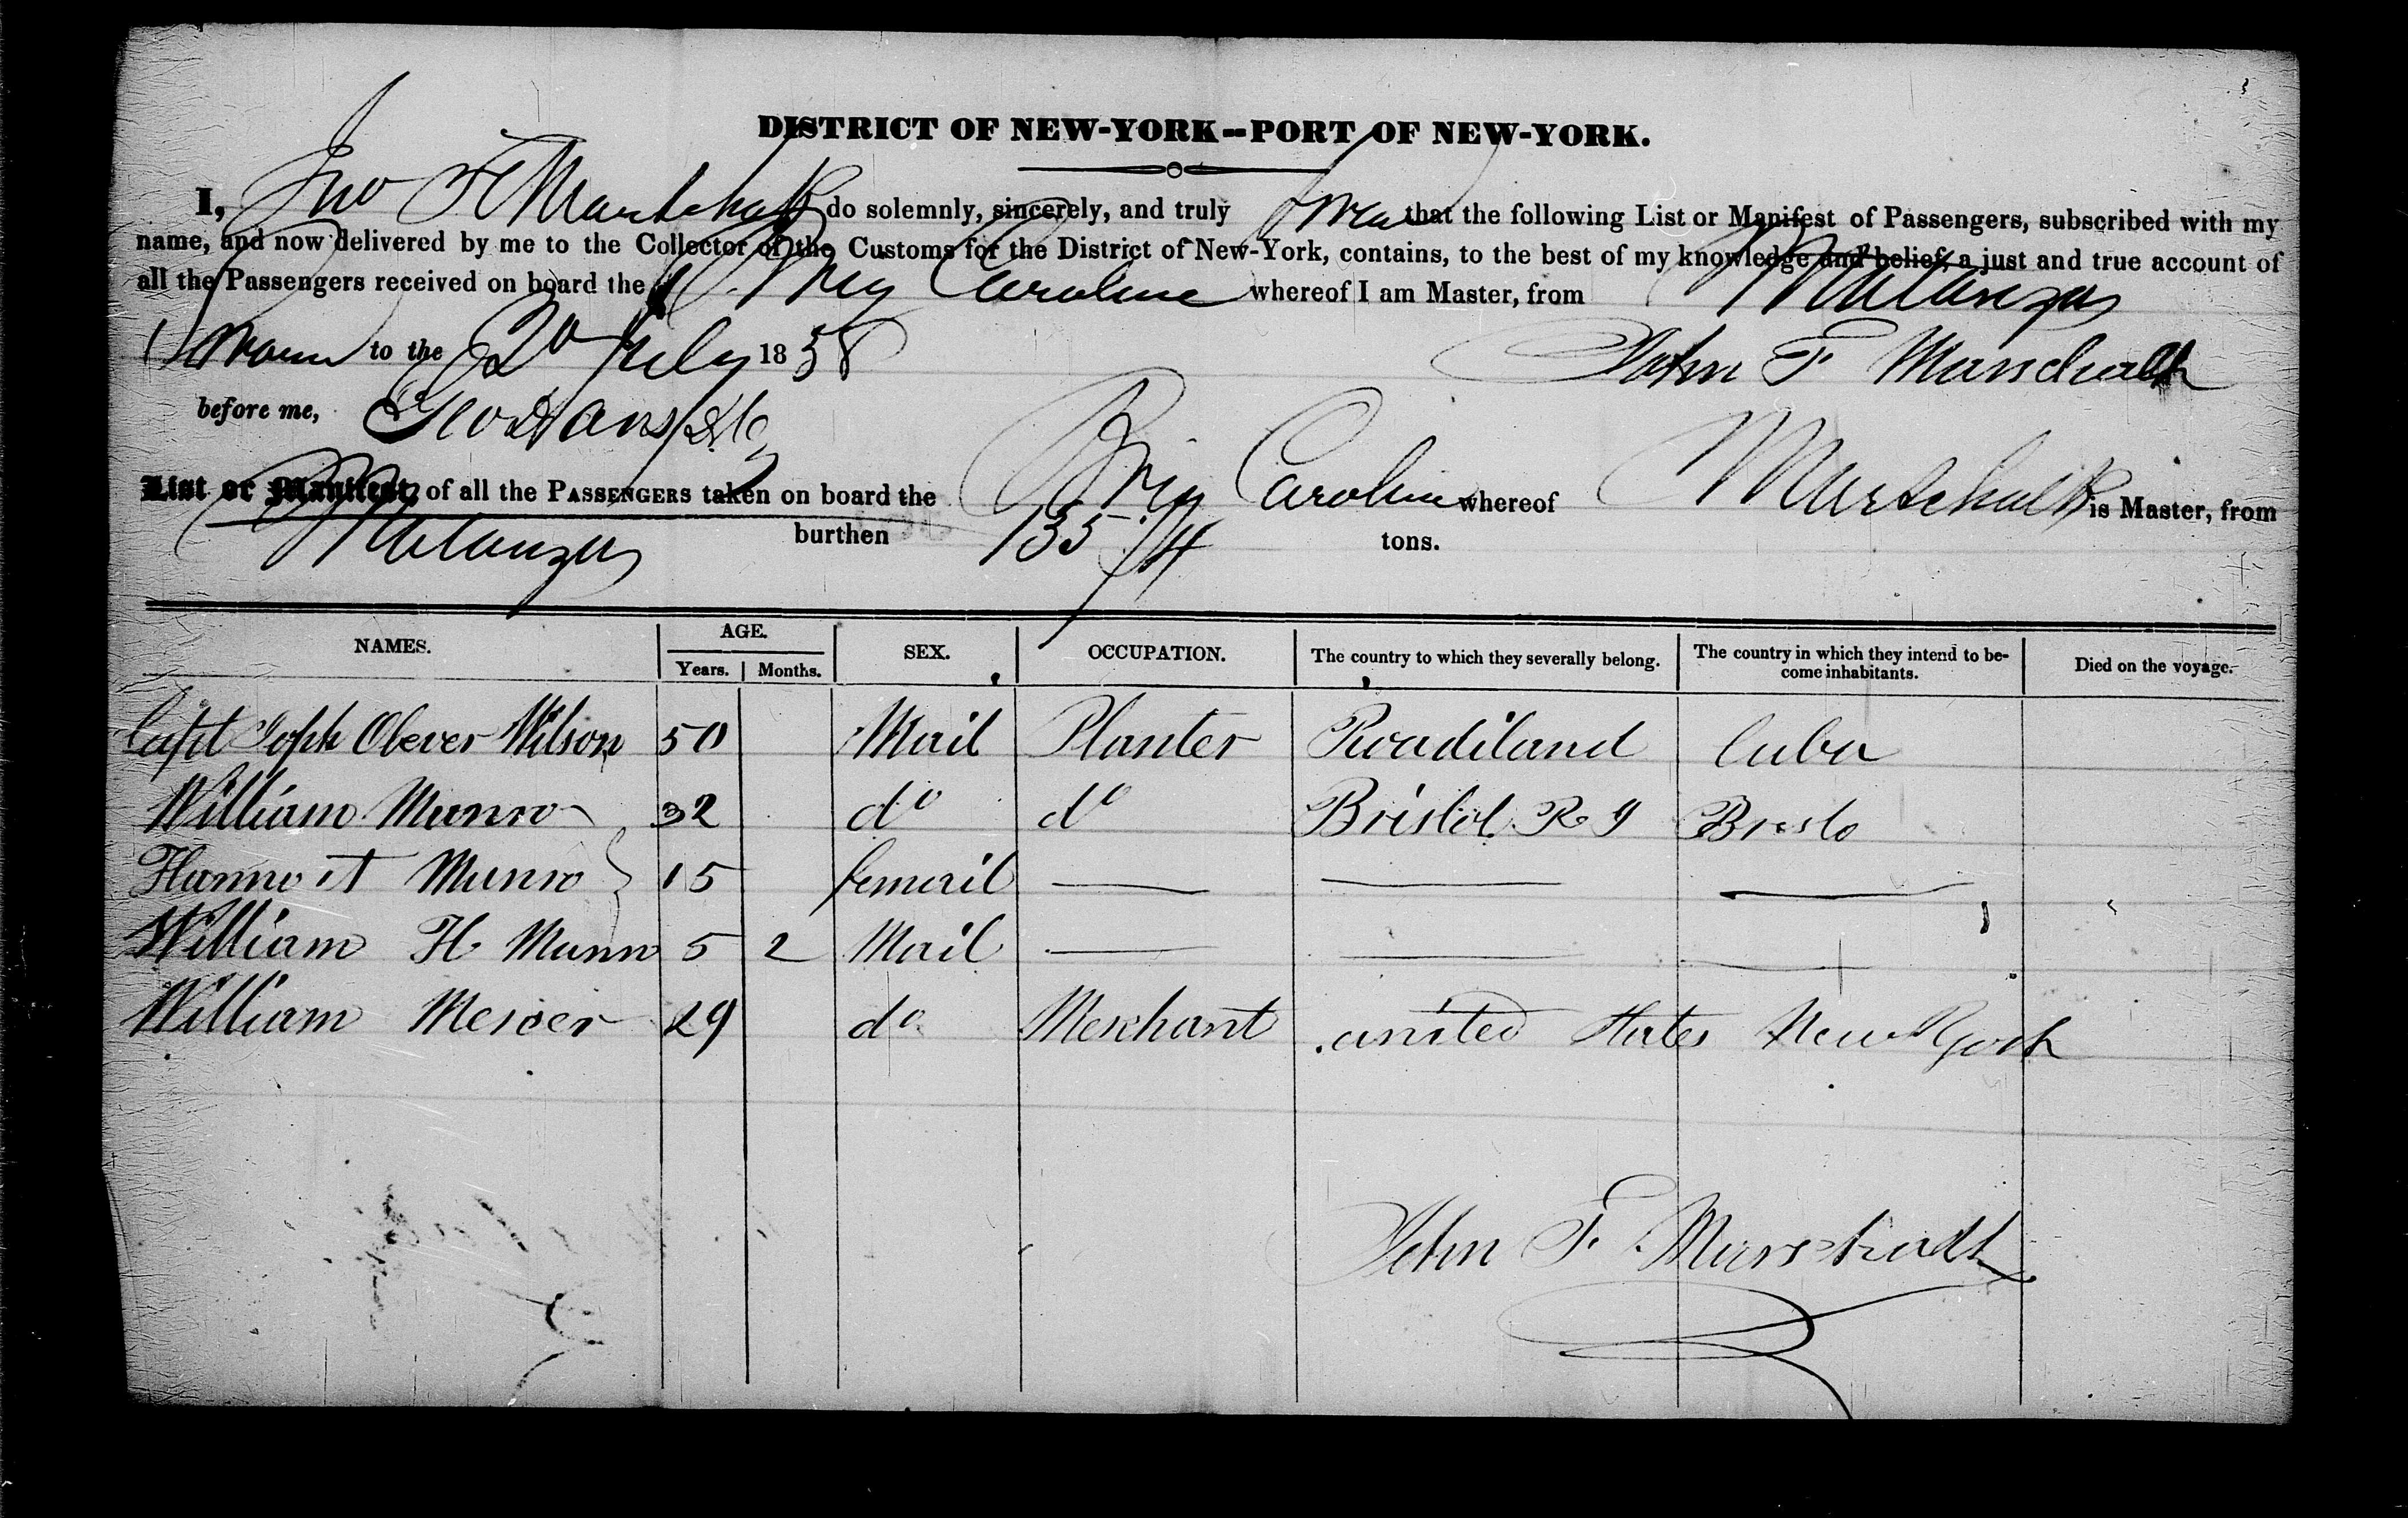 DISTRICT OF NEW-YORK--PORT OF NEW-YORK.
I, Jno F Marschalk do solemnly, sincerely, and truly swear that the following List or Manifest of Passengers, subscribed with my
name, and now delivered by me to the Collector of the Customs for the District of New-York, contains, to the best of my knowledge and belief, a just and true account of
all the Passengers received on board the Brig Caroline whereof I am Master, from Matanzas
Sworn to the 20 July 1838 John F Marschalk
before me,
List or Manifest, of all the PASSENGERS taken on board the Brig Caroline whereof Marschalk is Master, from
Matanzas burthen 135 tons.
NAMES. AGE. SEX. OCCUPATION. The country to which they severally belong. The country in which they intend to be- Died on the voyage.
Years. Months. come inhabitants.
Capt Joph Olever Wilson 50 Mail Planter Roadiland Cuba
William Munro 32 do do Bristol R I Bristo
Hannoit Munro 15 femail
William H Munro 5 2 Mail
William Mercer 29 do Merchant united States New York
John F. Marschalk